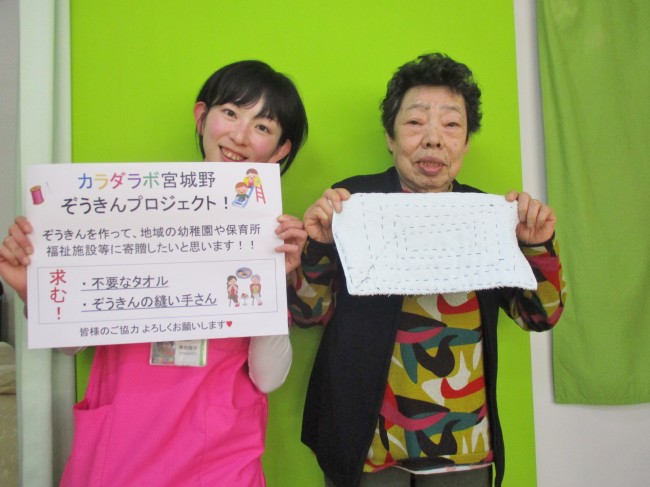 カラダラボ宮城野
ぞうきんプロジェクト！
ぞうきんを作って、地域の幼稚園や保育所
福祉施設等に寄贈したいと思います！！
求む！
・不要なタオル
・ぞうきんの縫い手さん
皆様のご協力 よろしくお願いします♥